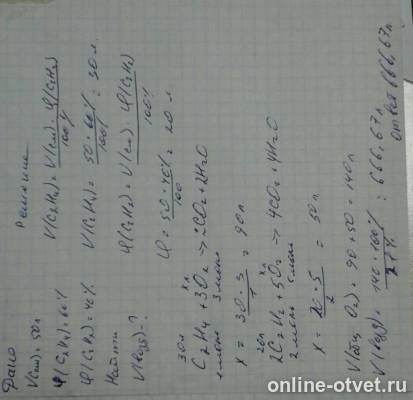 Дано
V(см) = 50л
φ(C2H4) = 60%
φ(C2H2) = 40%
Найти
V(возд) - ?
Решение
V(C2H4) = V(см) · φ(C2H4) / 100%
V(C2H4) = 50 · 60% / 100% = 30 л.
φ(C2H2) = V(см) · φ(C2H2) / 100%
φ = 50 · 40% / 100 = 20 л.
30л xл
C2H4 + 3O2 → 2CO2 + 2H2O
1 моль 3 моль
x = 30 · 3 / 1 = 90л
20л xл
2C2H2 + 5O2 → 4CO2 + 4H2O
2 моль 5 моль
x = 20 · 5 / 2 = 50л
V(общ O2) = 90 + 50 = 140л
V(возд) = 140 · 100% / 21% = 666,67л
Ответ 666,67л
online-otvet.ru